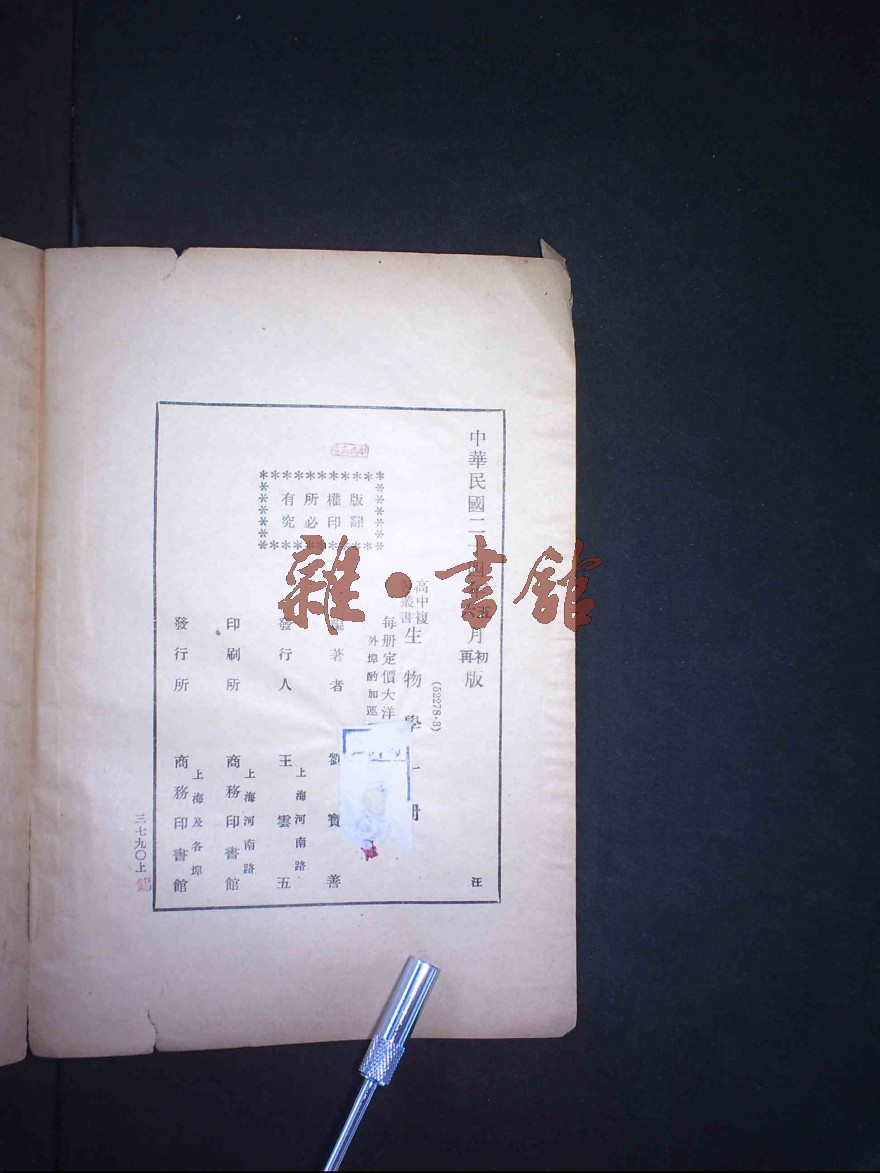 中華民國二十四年五月初版
再
(52278·3)
高中複
叢書
生物學一冊
每册定價大洋
外埠酌加運
版權所有
翻印必究
編著者 劉寶善
發行人 王雲五
上海河南路
印刷所 商務印書館
上海河南路
發行所 商務印書館
上海及各埠
汪
三七九〇上
雜·書館